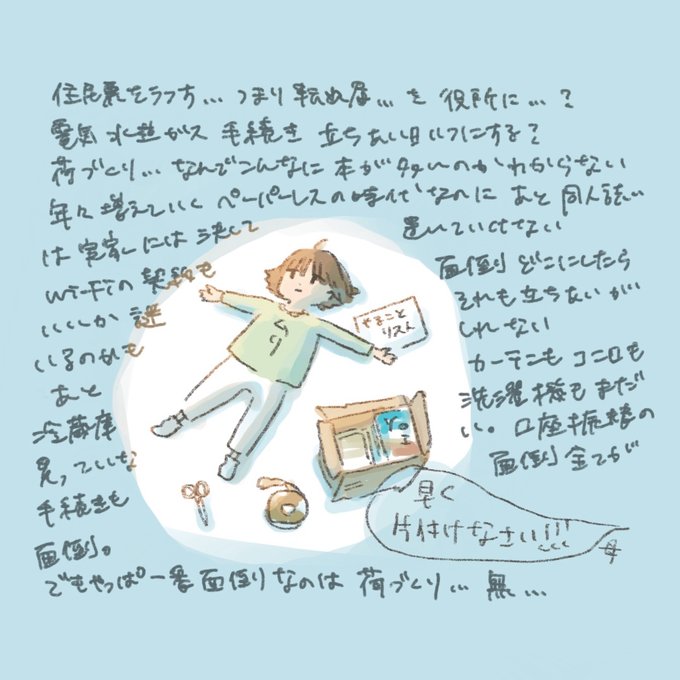 住民票をうつす… つまり転出届… を 役所に…？
電気 水道 ガス 手続き 立ちあい日いつにする？
荷づくり… なんでこんなに 本が多いのか わからない
年々増えていく ペーパーレスの時代なのに あと 同人誌…
は 実家には 決して 置いていけない
Wi-Fiの契約も 面倒 どこにしたら
いいか 謎 それも立ちあいが
いるのかも しれない
あと カーテンも コンロも
冷蔵庫 洗濯機もまだ
買っていな い。口座振替の
手続きも 面倒 全てが
面倒。
でもやっぱ一番面倒なのは 荷づくり… 無…
むり
やること
リスト
早く
片付けなさい!!!
母